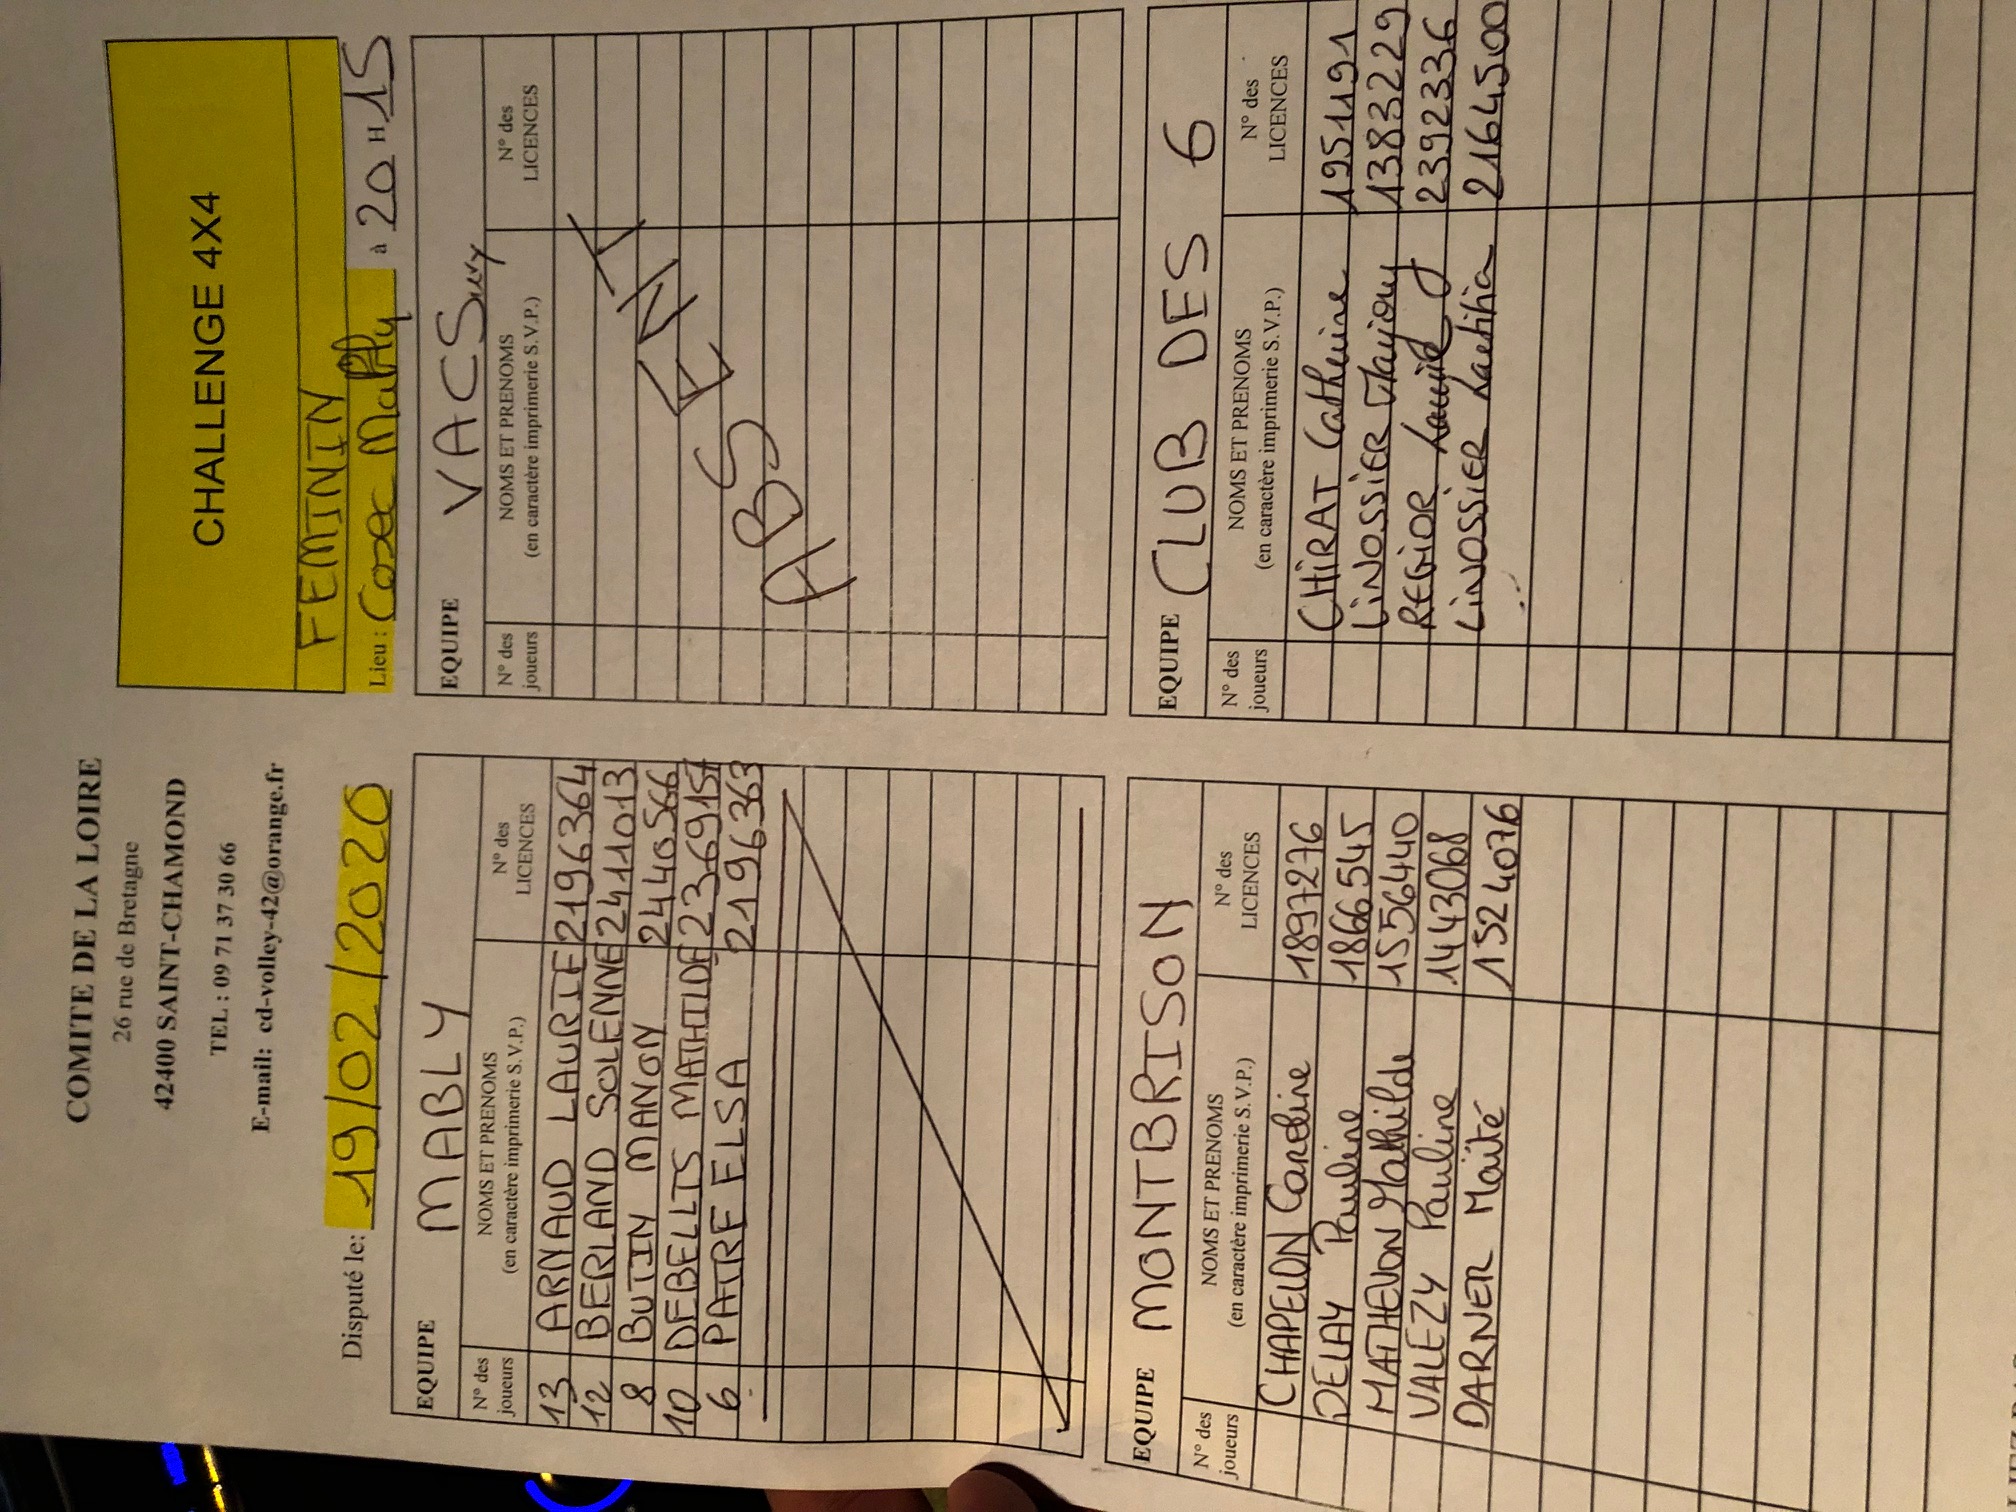 COMITE DE LA LOIRE
26 rue de Bretagne
42400 SAINT-CHAMOND
TEL : 09 71 37 30 66
E-mail: cd-volley-42@orange.fr
CHALLENGE 4X4
FEMININ
Disputé le: 19/02/2020
Lieu : Cosec Mably à 20 H 15
EQUIPE MABLY
N° des joueurs NOMS ET PRENOMS (en caractère imprimerie S.V.P.) N° des LICENCES
13 ARNAUD LAURIE 2196364
12 BERLAND SOLENNE 2411013
8 BUTIN MANON 2440566
10 DEBELLIS MATHILDE 2369157
6 PATRE ELSA 2196363
EQUIPE VACSury
N° des joueurs NOMS ET PRENOMS (en caractère imprimerie S.V.P.) N° des LICENCES
ABSENT
EQUIPE MONTBRISON
N° des joueurs NOMS ET PRENOMS (en caractère imprimerie S.V.P.) N° des LICENCES
CHAPELON Caroline 1897276
DELAY Pauline 1866545
MATHEVON Mathilde 1556440
VALEZY Pauline 1443068
DARNER Maïté 1524076
EQUIPE CLUB DES 6
N° des joueurs NOMS ET PRENOMS (en caractère imprimerie S.V.P.) N° des LICENCES
CHIRAT Catherine 1951191
LINOSSIER 1383229
REGIOR 2392336
LINOSSIER Laetitia 2164500